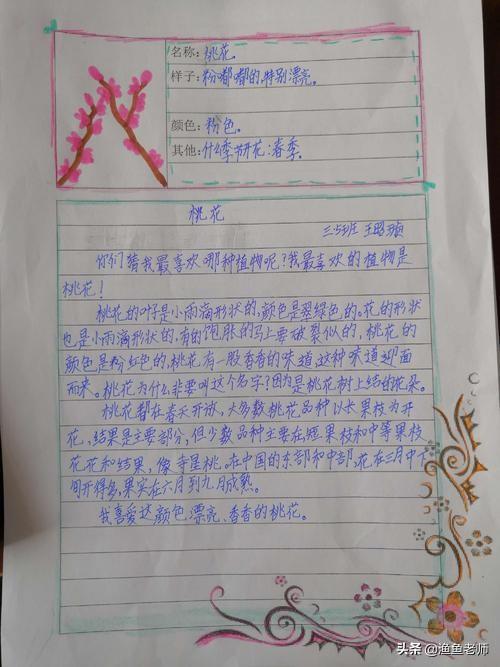 名称:桃花。
样子:粉嘟嘟的,特别漂亮。
颜色:粉色。
其他:什么季节开花:春季。
桃花
三5班 王昭璇
你们猜我最喜欢哪种植物呢?我最喜欢的植物是
桃花!
桃花的叶子是小雨滴形状的,颜色是翠绿色的。花的形状
也是小雨滴形状的,有的饱胀的马上要破裂似的,桃花的
颜色是粉红色的,桃花有一股香香的味道,这种味道迎面
而来。桃花为什么非要叫这个名字?因为是桃花树上结的花朵。
桃花都在春天开放,大多数桃花品种以长果枝为开
花,结果是主要部分,但少数品种主要在短果枝和中等果枝
花花和结果,像寿星桃。在中国的东部和中部,花在三月中下
旬开得多,果实在六月到九月成熟。
我喜爱这颜色漂亮、香香的桃花。
头条 @渔鱼老师